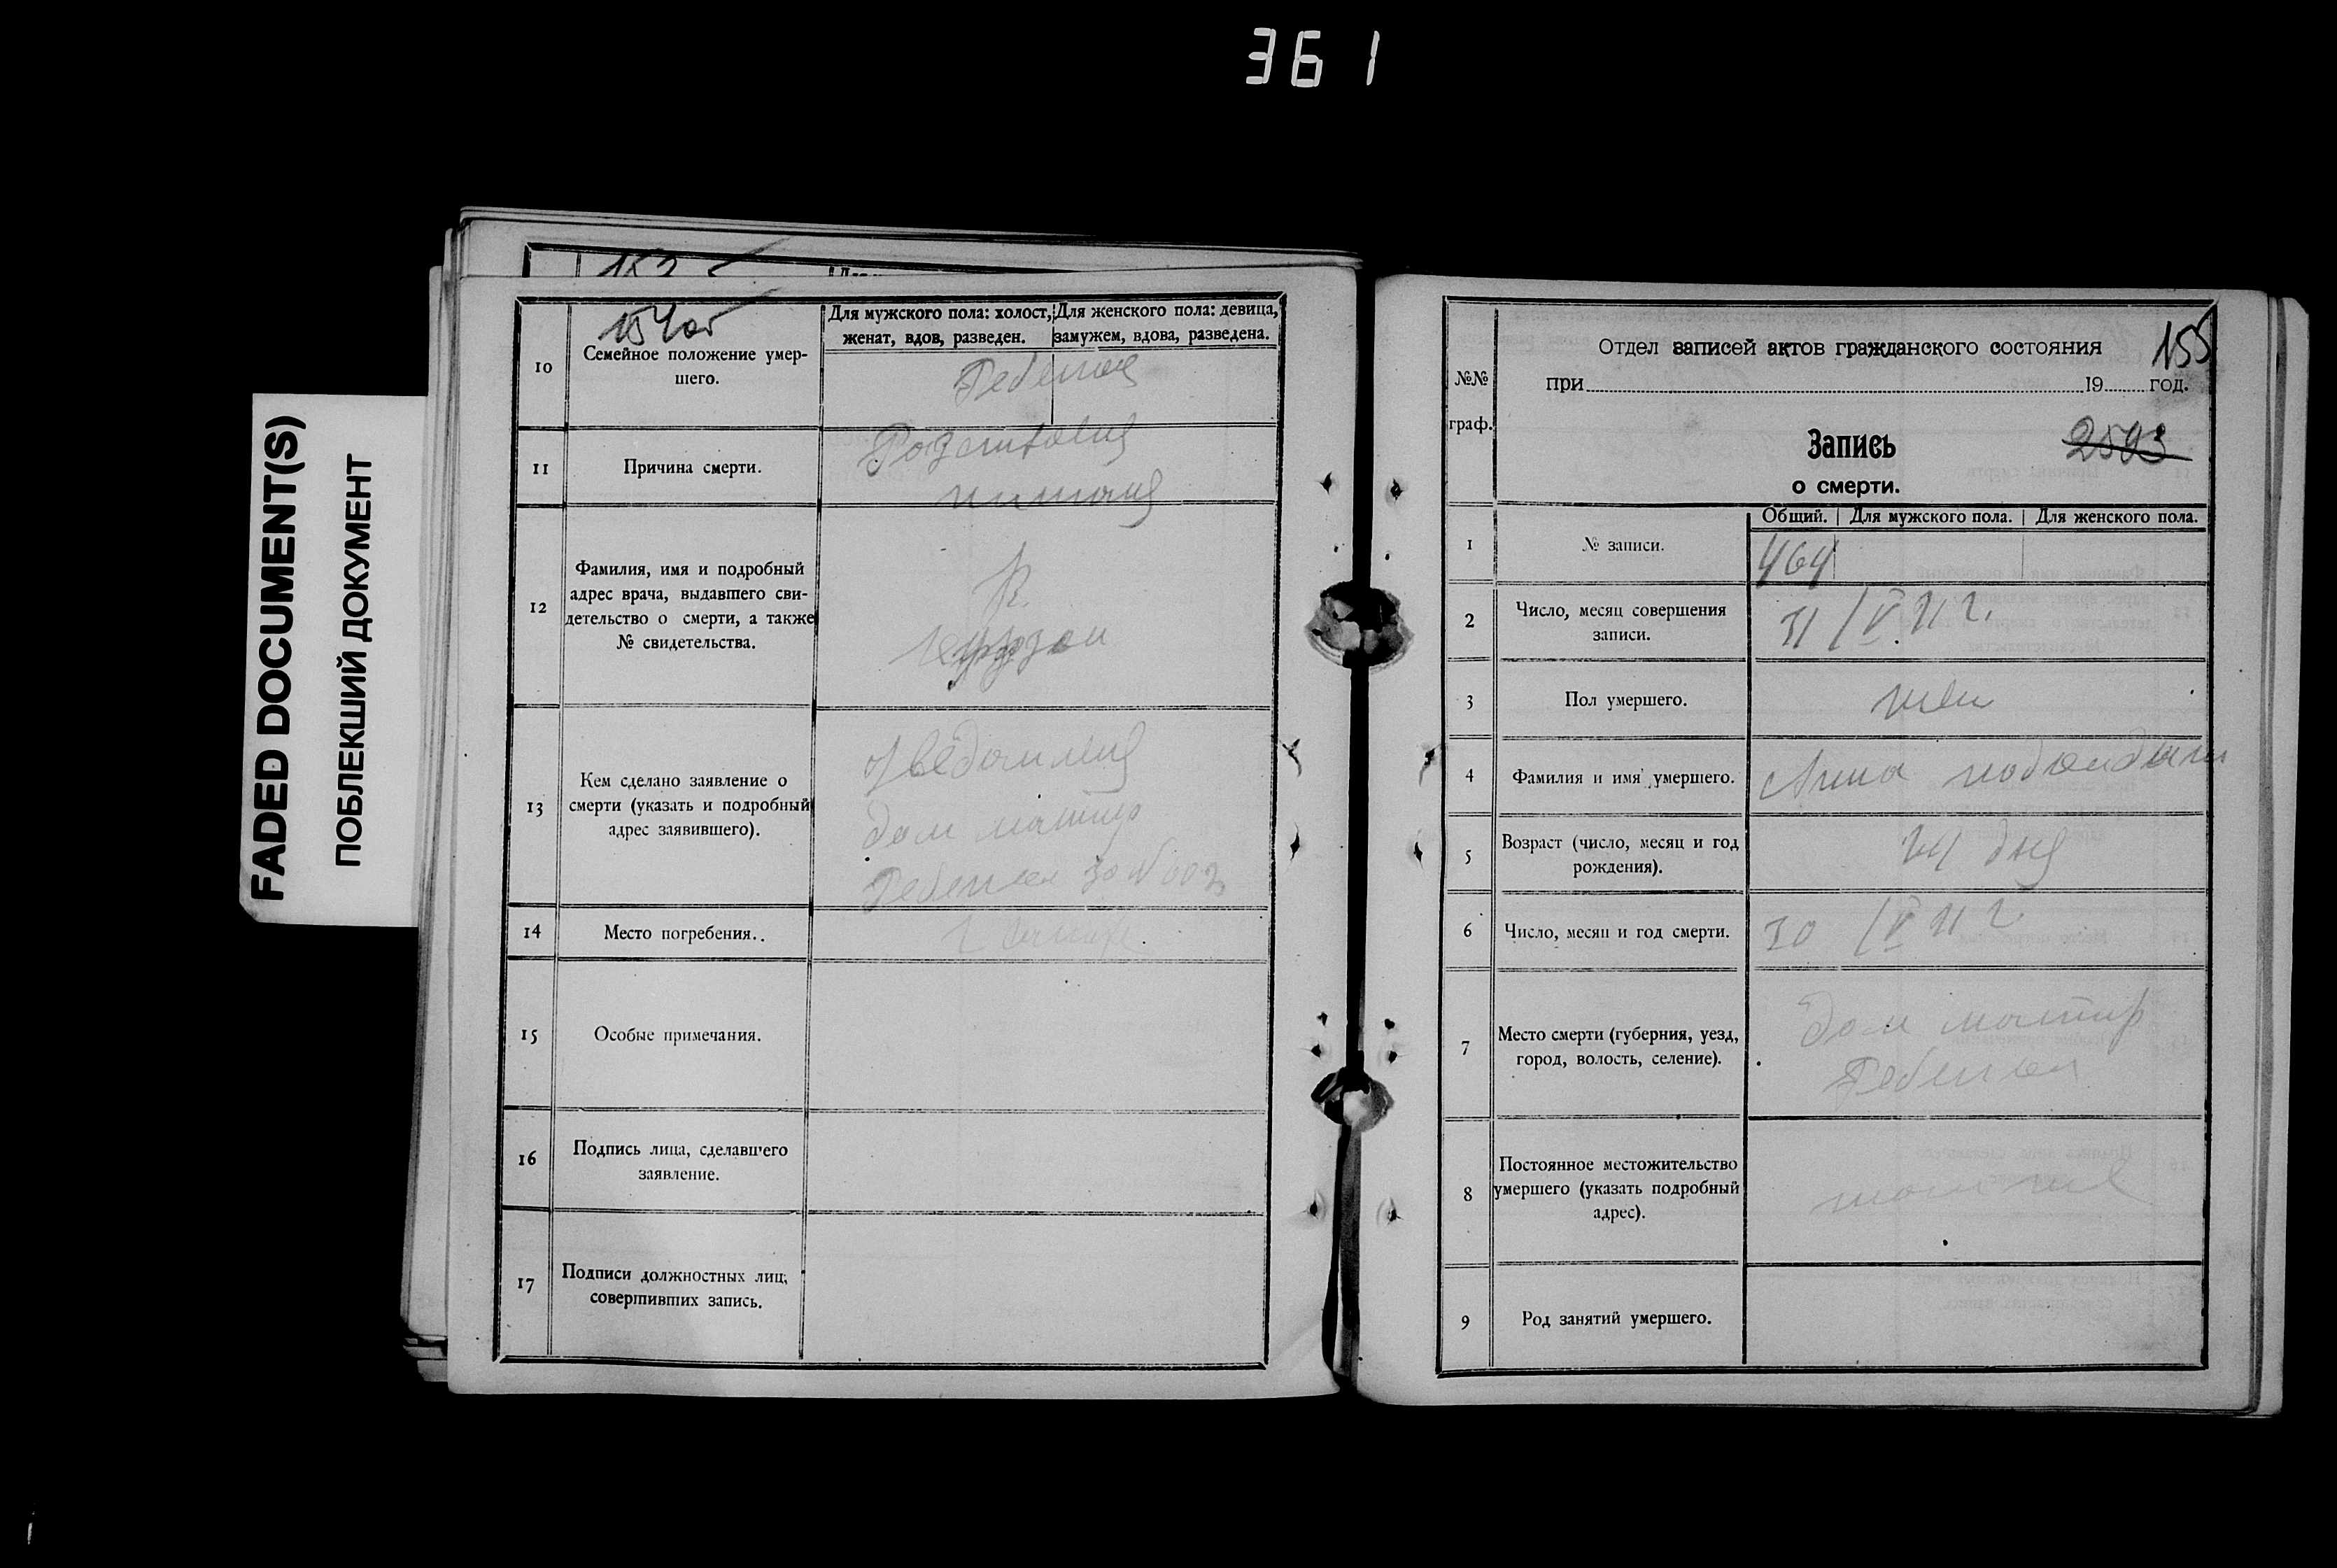 361
FADED DOCUMENT(S)
ПОБЛЕКШИЙ ДОКУМЕНТ
154об
10
Семейное положение умер-
шего.
Для мужского пола: холост,
женат, вдов, разведен.
Для женского пола: девица,
замужем, вдова, разведена.
Ребенок
11
Причина смерти.
12
Фамилия, имя и подробный
адрес врача, выдавшего сви-
детельство о смерти, а также
№ свидетельства.
13
Кем сделано заявление о
смерти (указать и подробный
адрес заявившего).
дом матир
Ребенка
14
Место погребения..
15
Особые примечания.
16
Подпись лица, сделавшего
заявление.
17
Подписи должностных лиц,
совершивших запись.
155
№№
граф.
Отдел записей актов гражданского состояния
при 19 год.
Запись
о смерти.
2593
Общий. Для мужского пола. Для женского пола.
1
№ записи.
464
2
Число, месяц совершения
записи.
31/V 21 г.
3
Пол умершего.
жен
4
Фамилия и имя умершего.
Анна
5
Возраст (число, месяц и год
рождения).
дня
6
Число, месяц и год смерти.
30/V 21 г
7
Место смерти (губерния, уезд,
город, волость, селение).
дом матир
Ребенка
8
Постоянное местожительство
умершего (указать подробный
адрес).
9
Род занятий умершего.